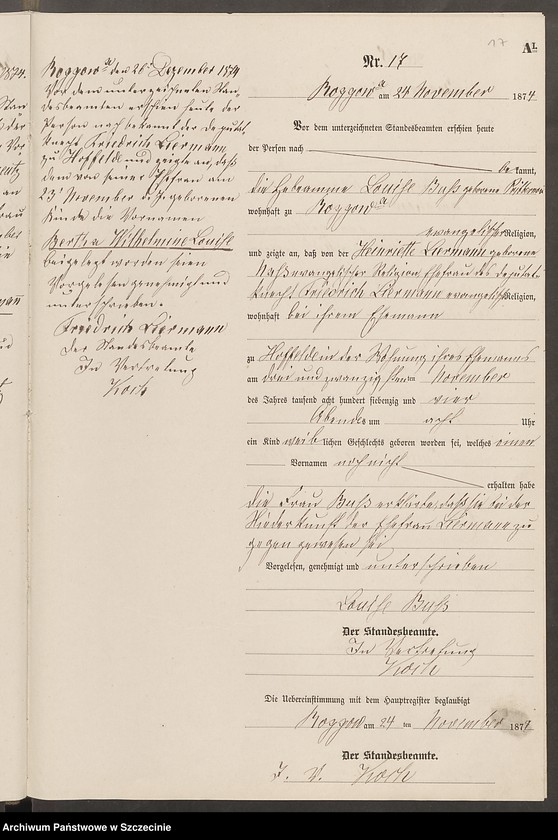 17
A1.
Nr. 17
Roggow A am 24 November 1874
Vor dem unterzeichneten Standesbeamten erschien heute
der Person nach
bekannt,
die Hebeamme Louise Buß geborene
wohnhaft zu Roggow A
evangelischer Religion,
und zeigte an, daß von der Henriette Liermann geborene
Naß evangelischer Religion Ehefrau des Deputat-
knecht Friedrich Liermann evangelischer Religion,
wohnhaft bei ihrem Ehemann
zu Hoffelde in der Wohnung ihres Ehemanns
am drei und zwanzigsten ten November
des Jahres tausend acht hundert siebenzig und vier
Abends um acht Uhr
ein Kind weiblichen Geschlechts geboren worden sei, welches einen
Vornamen noch nicht
erhalten habe
die Frau Buß erklärte, daß sie bei der
Niederkunft der Ehefrau Liermann zu
gegen gewesen sei
Vorgelesen, genehmigt und unterschrieben
Louise Buß
Der Standesbeamte.
In Vertretung
Koch
Die Uebereinstimmung mit dem Hauptregister beglaubigt
Roggow am 24 ten November 1874
Der Standesbeamte.
I. V. Koch
Roggow A den 28 Dezember 1874
Vor dem unterzeichneten Stan-
desbeamten erschien heute der
Person nach bekannt der Deputat
knecht Friedrich Liermann
zu Hoffelde und zeigte an, daß
dem von seiner Ehefrau am
23 November d. J. geborenen
Kinde die Vornamen
Bertha Wilhelmine Louise
beigelegt worden seien
Vorgelesen genehmigt und
unterschrieben.
Friedrich Liermann
Der Standesbeamte
In Vertretung
Koch
Archiwum Państwowe w Szczecinie